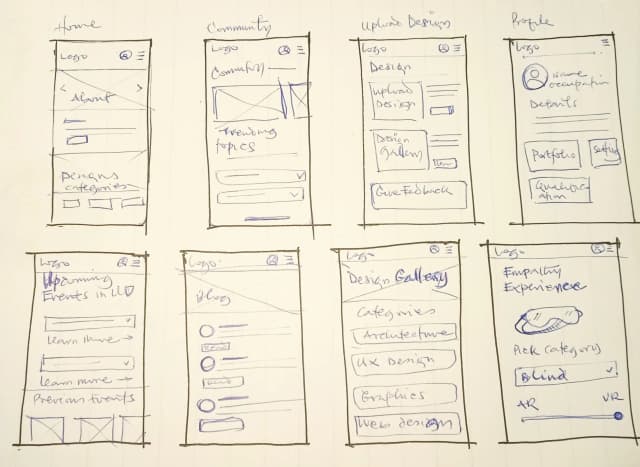 Home
Community
Upload Design
Profile
Logo
< About >
Designs
categories
Logo
Community
Trending
topics
Logo
Design
Upload
Design
Design
Gallery
View
Give Feedback
Logo
Name
occupation
Details
Portfolio
Setting
Qualific-
ation
Logo
Upcoming
Events in
Learn more →
Learn more →
Previous Events
Logo
Blog
Read
Read
Logo
Design Gallery
Categories
Architecture
UX Design
Graphics
Web design
Logo
Empathy
Experience
Pick Category
Blind
AR VR